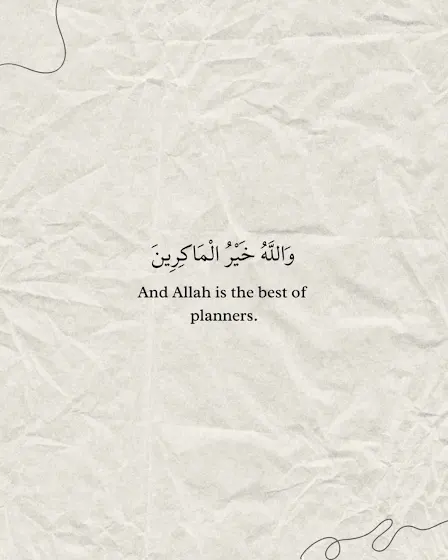 وَاللَّهُ خَيْرُ الْمَاكِرِينَ
And Allah is the best of
planners.